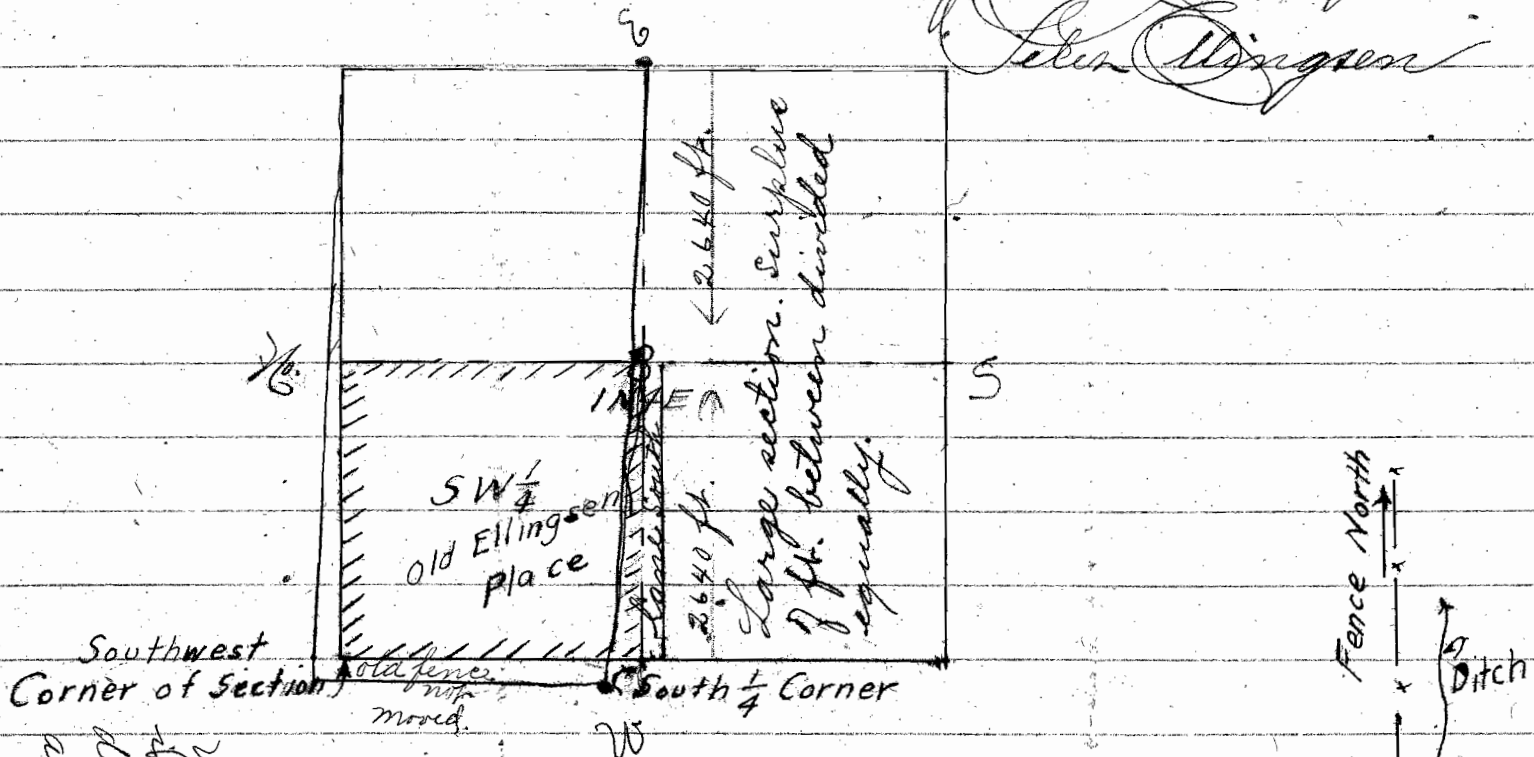 Ellingsen
2640 ft.
Large section. Surplus
of ft. between divided
equally.
S
2640 ft.
SW 1/4
Old Ellingsen
place
Lane South
Southwest
Corner of Section
old fence
not
moved.
South 1/4 Corner
Fence North
Ditch